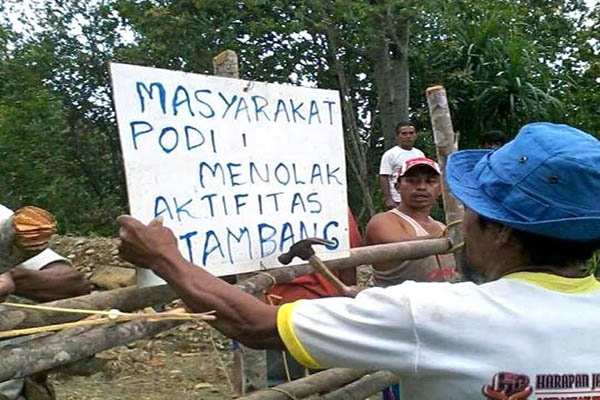 MASYARAKAT
PODI
MENOLAK
AKTIFITAS
TAMBANG
HARAPAN